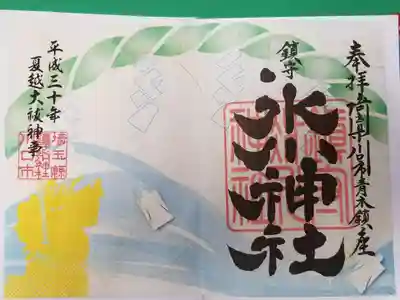 奉拝 埼玉県川口市青木鎮座
鎮守
氷川神社
平成三十年
夏越大祓神事
埼玉縣
川口市